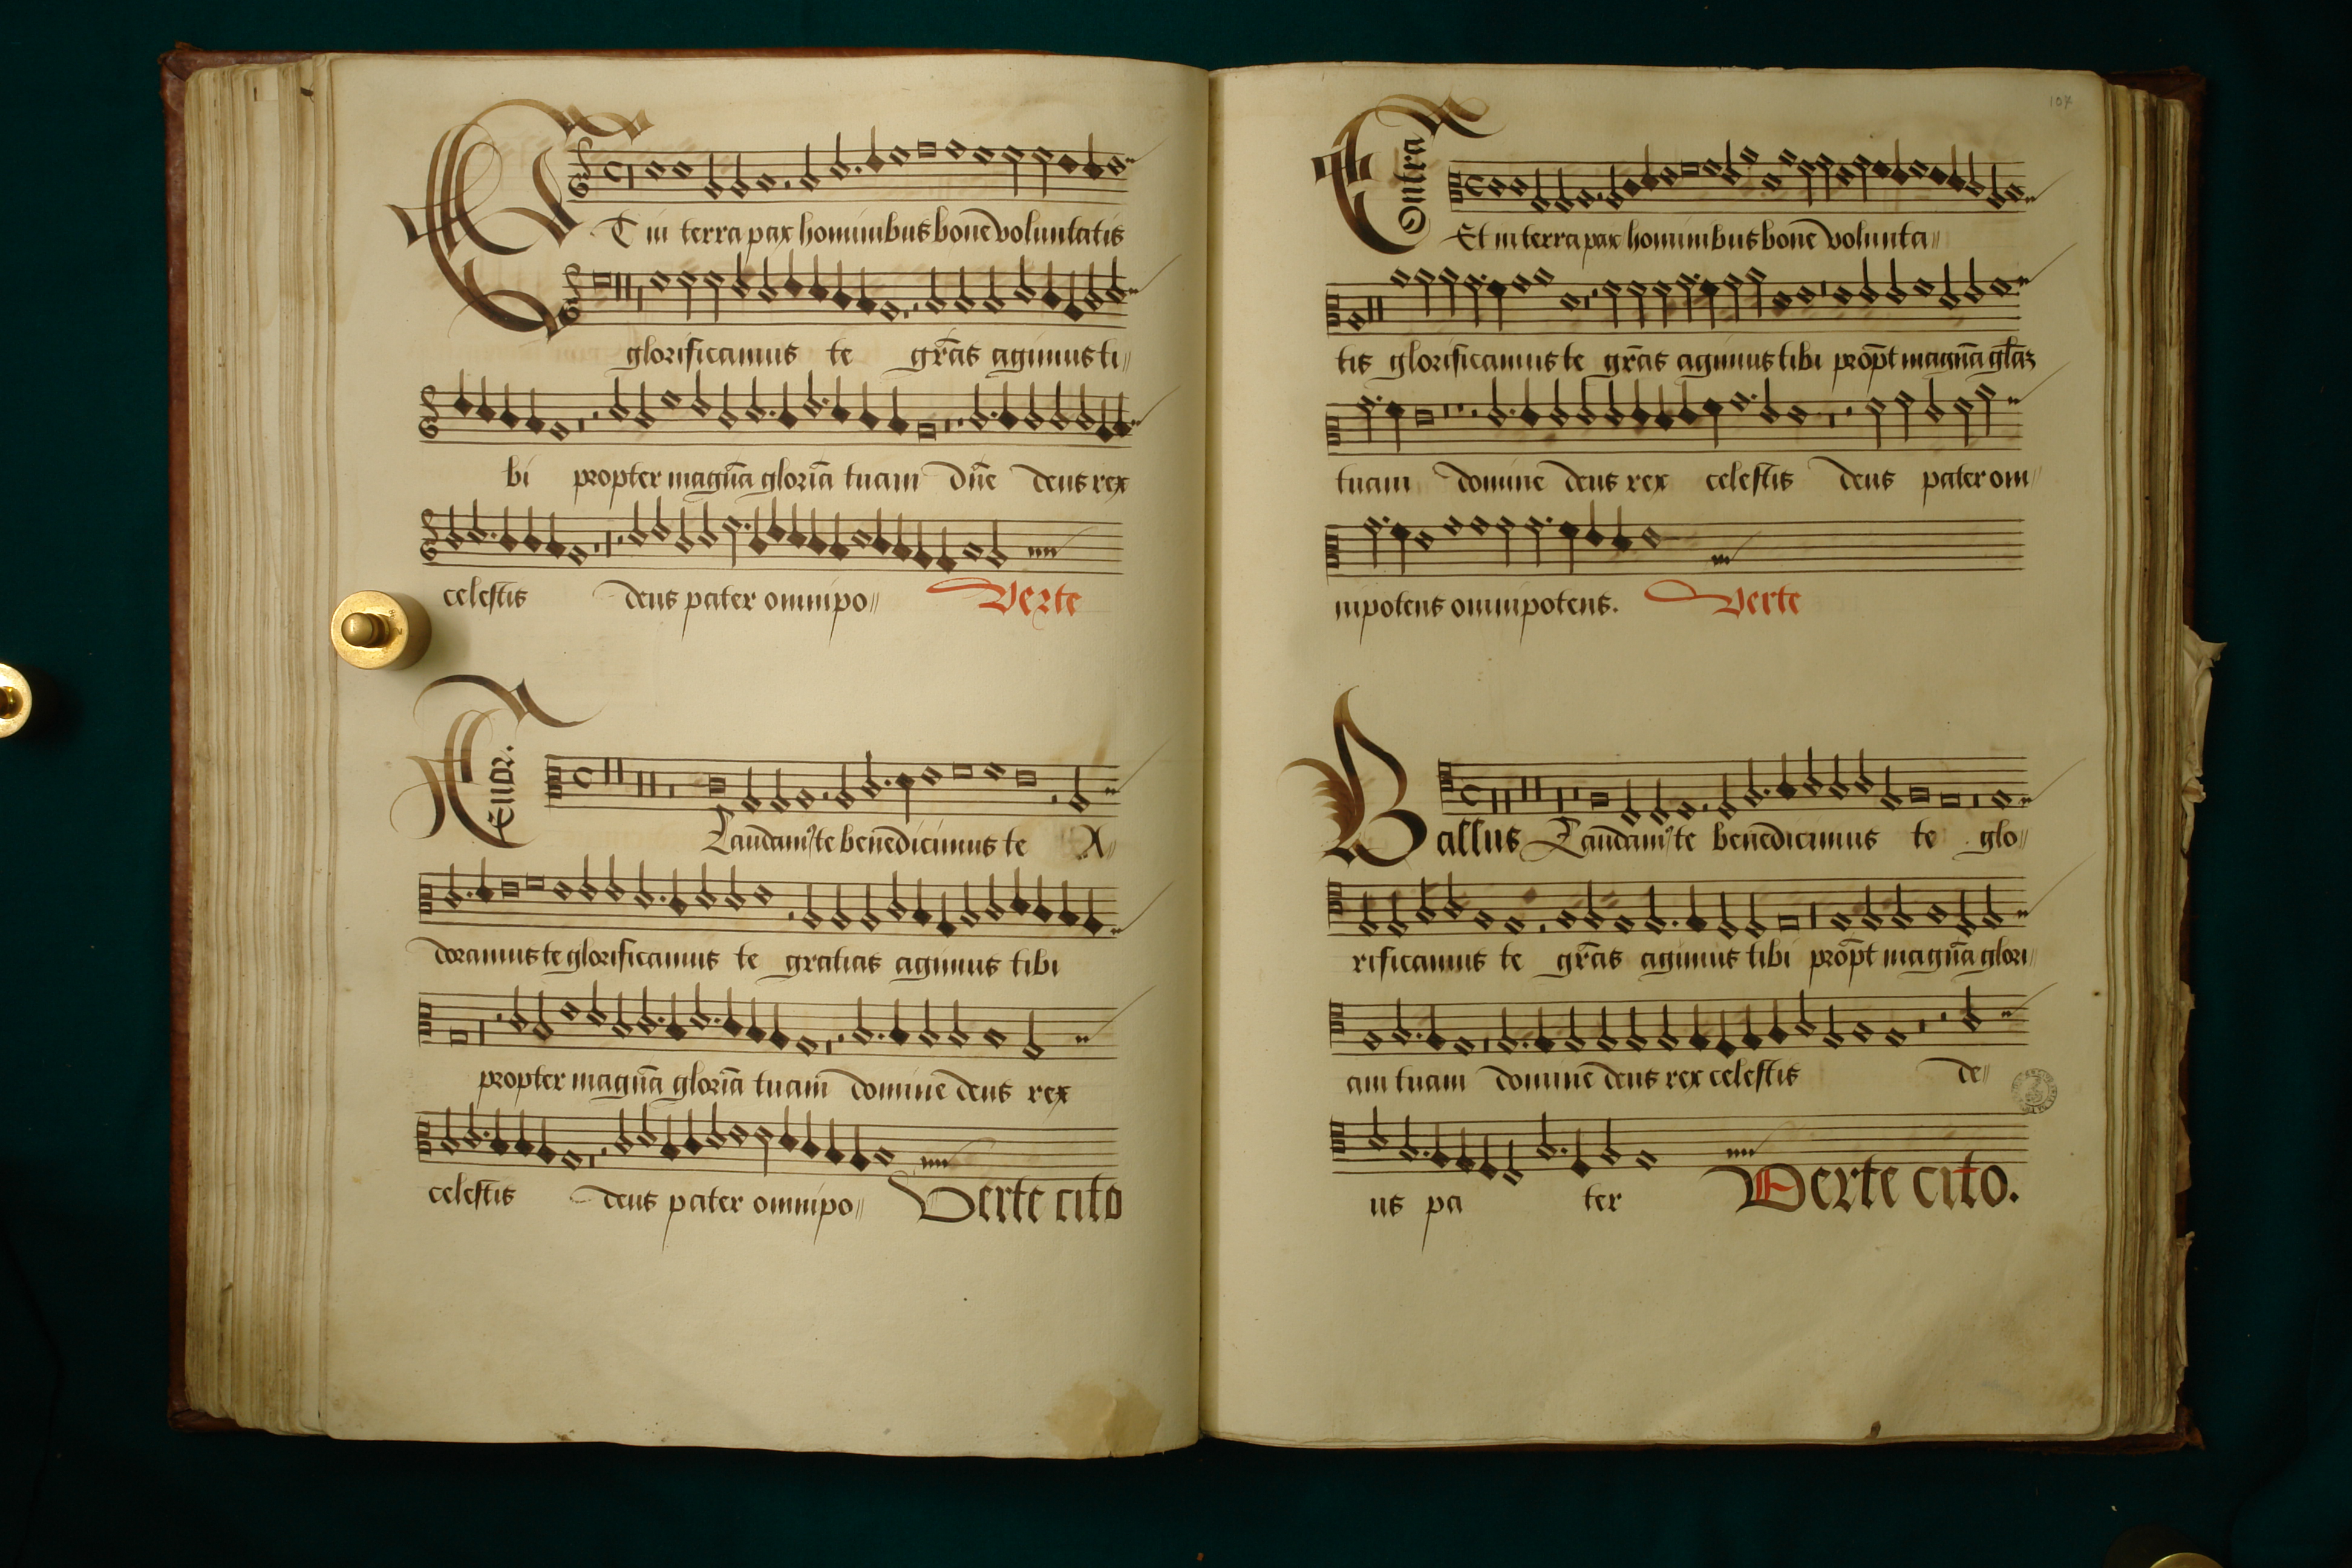 ET in terra pax hominibus bonē voluntatis
glorificamus te gr̄as agimus ti〃
bi propter magnā gloriā tuam dn̄e deus rex
celestis deus pater omnipo〃 Verte
Tenor.
Laudamꝰ te benedicimus te A〃
doramus te glorificamus te gratias agimus tibi
propter magnā gloriā tuam domine deus rex
celestis deus pater omnipo〃 Verte cito
107
Contra
Et in terra pax hominibus bonē volunta〃
tis glorificamus te gr̄as agimus tibi prop̄t magnā gl̄aꝫ
tuam domine deus rex celestis deus pater om〃
nipotens omnipotens. Verte
Bassus Laudamꝰ te benedicimus te glo〃
rificamus te gr̄as agimus tibi prop̄t magnā glori〃
am tuam domine deus rex celestis de〃
us pa ter Verte cito.